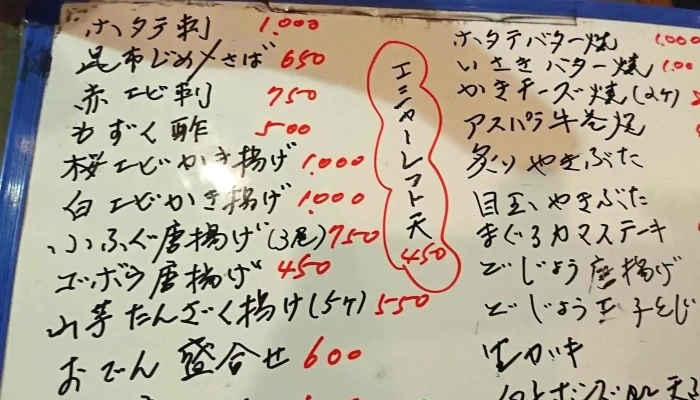 ホタテ刺 1.000
昆布じめ〆さば 650
赤エビ刺 750
もずく酢 500
桜エビかき揚げ 1.000
白エビかき揚げ 1.000
小ふぐ唐揚げ(3尾) 750
ゴボウ唐揚げ 450
山芋たんざく揚げ(5ヶ) 550
おでん盛合せ 600
エシャーレット天 450
ホタテバター焼 1.000
いさきバター焼 1.00
かきチーズ焼(2ケ)
アスパラ牛巻焼
炙りやきぶた
目玉やきぶた
まぐろカマステーキ
どじょう唐揚げ
どじょう玉子とじ
生ガキ